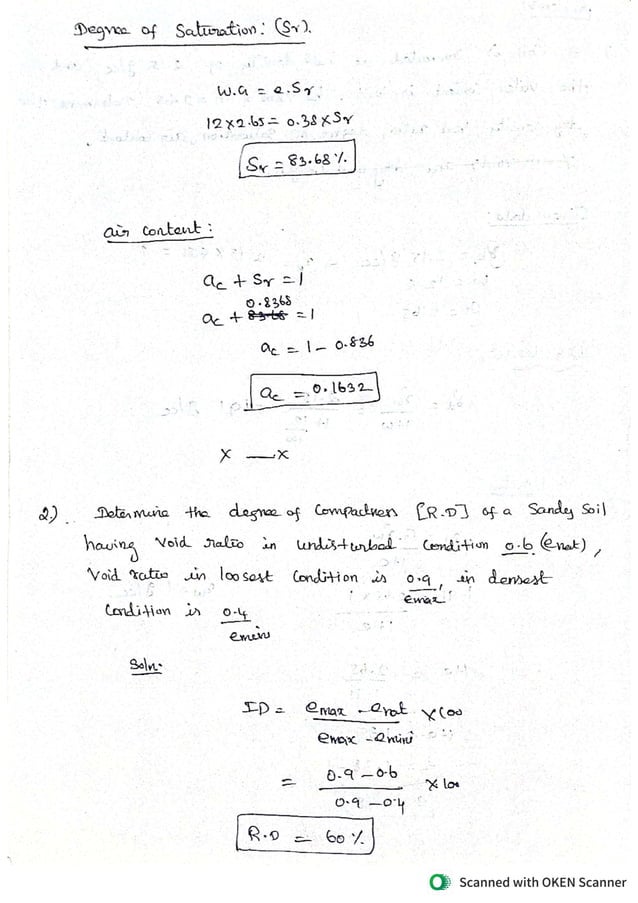 Degree of Saturation: (Sr).
W.G = e.Sr
12 x 2.65 = 0.38 x Sr
Sr = 83.68 %
air content :
ac + Sr = 1
0.8368
ac + 83.68 = 1
ac = 1 - 0.836
ac = 0.1632
x — x
2.) Determine the degree of Compactness [R.D] of a Sandy Soil
having Void ratio in undisturbed Condition 0.6 (enat),
Void ratio in loosest Condition is 0.9, in densest
emax
Condition is 0.4
emini
Soln.
ID = emax - enat x 100
emax - emini
= 0.9 - 0.6 x 100
0.9 - 0.4
R.D = 60 %
Scanned with OKEN Scanner